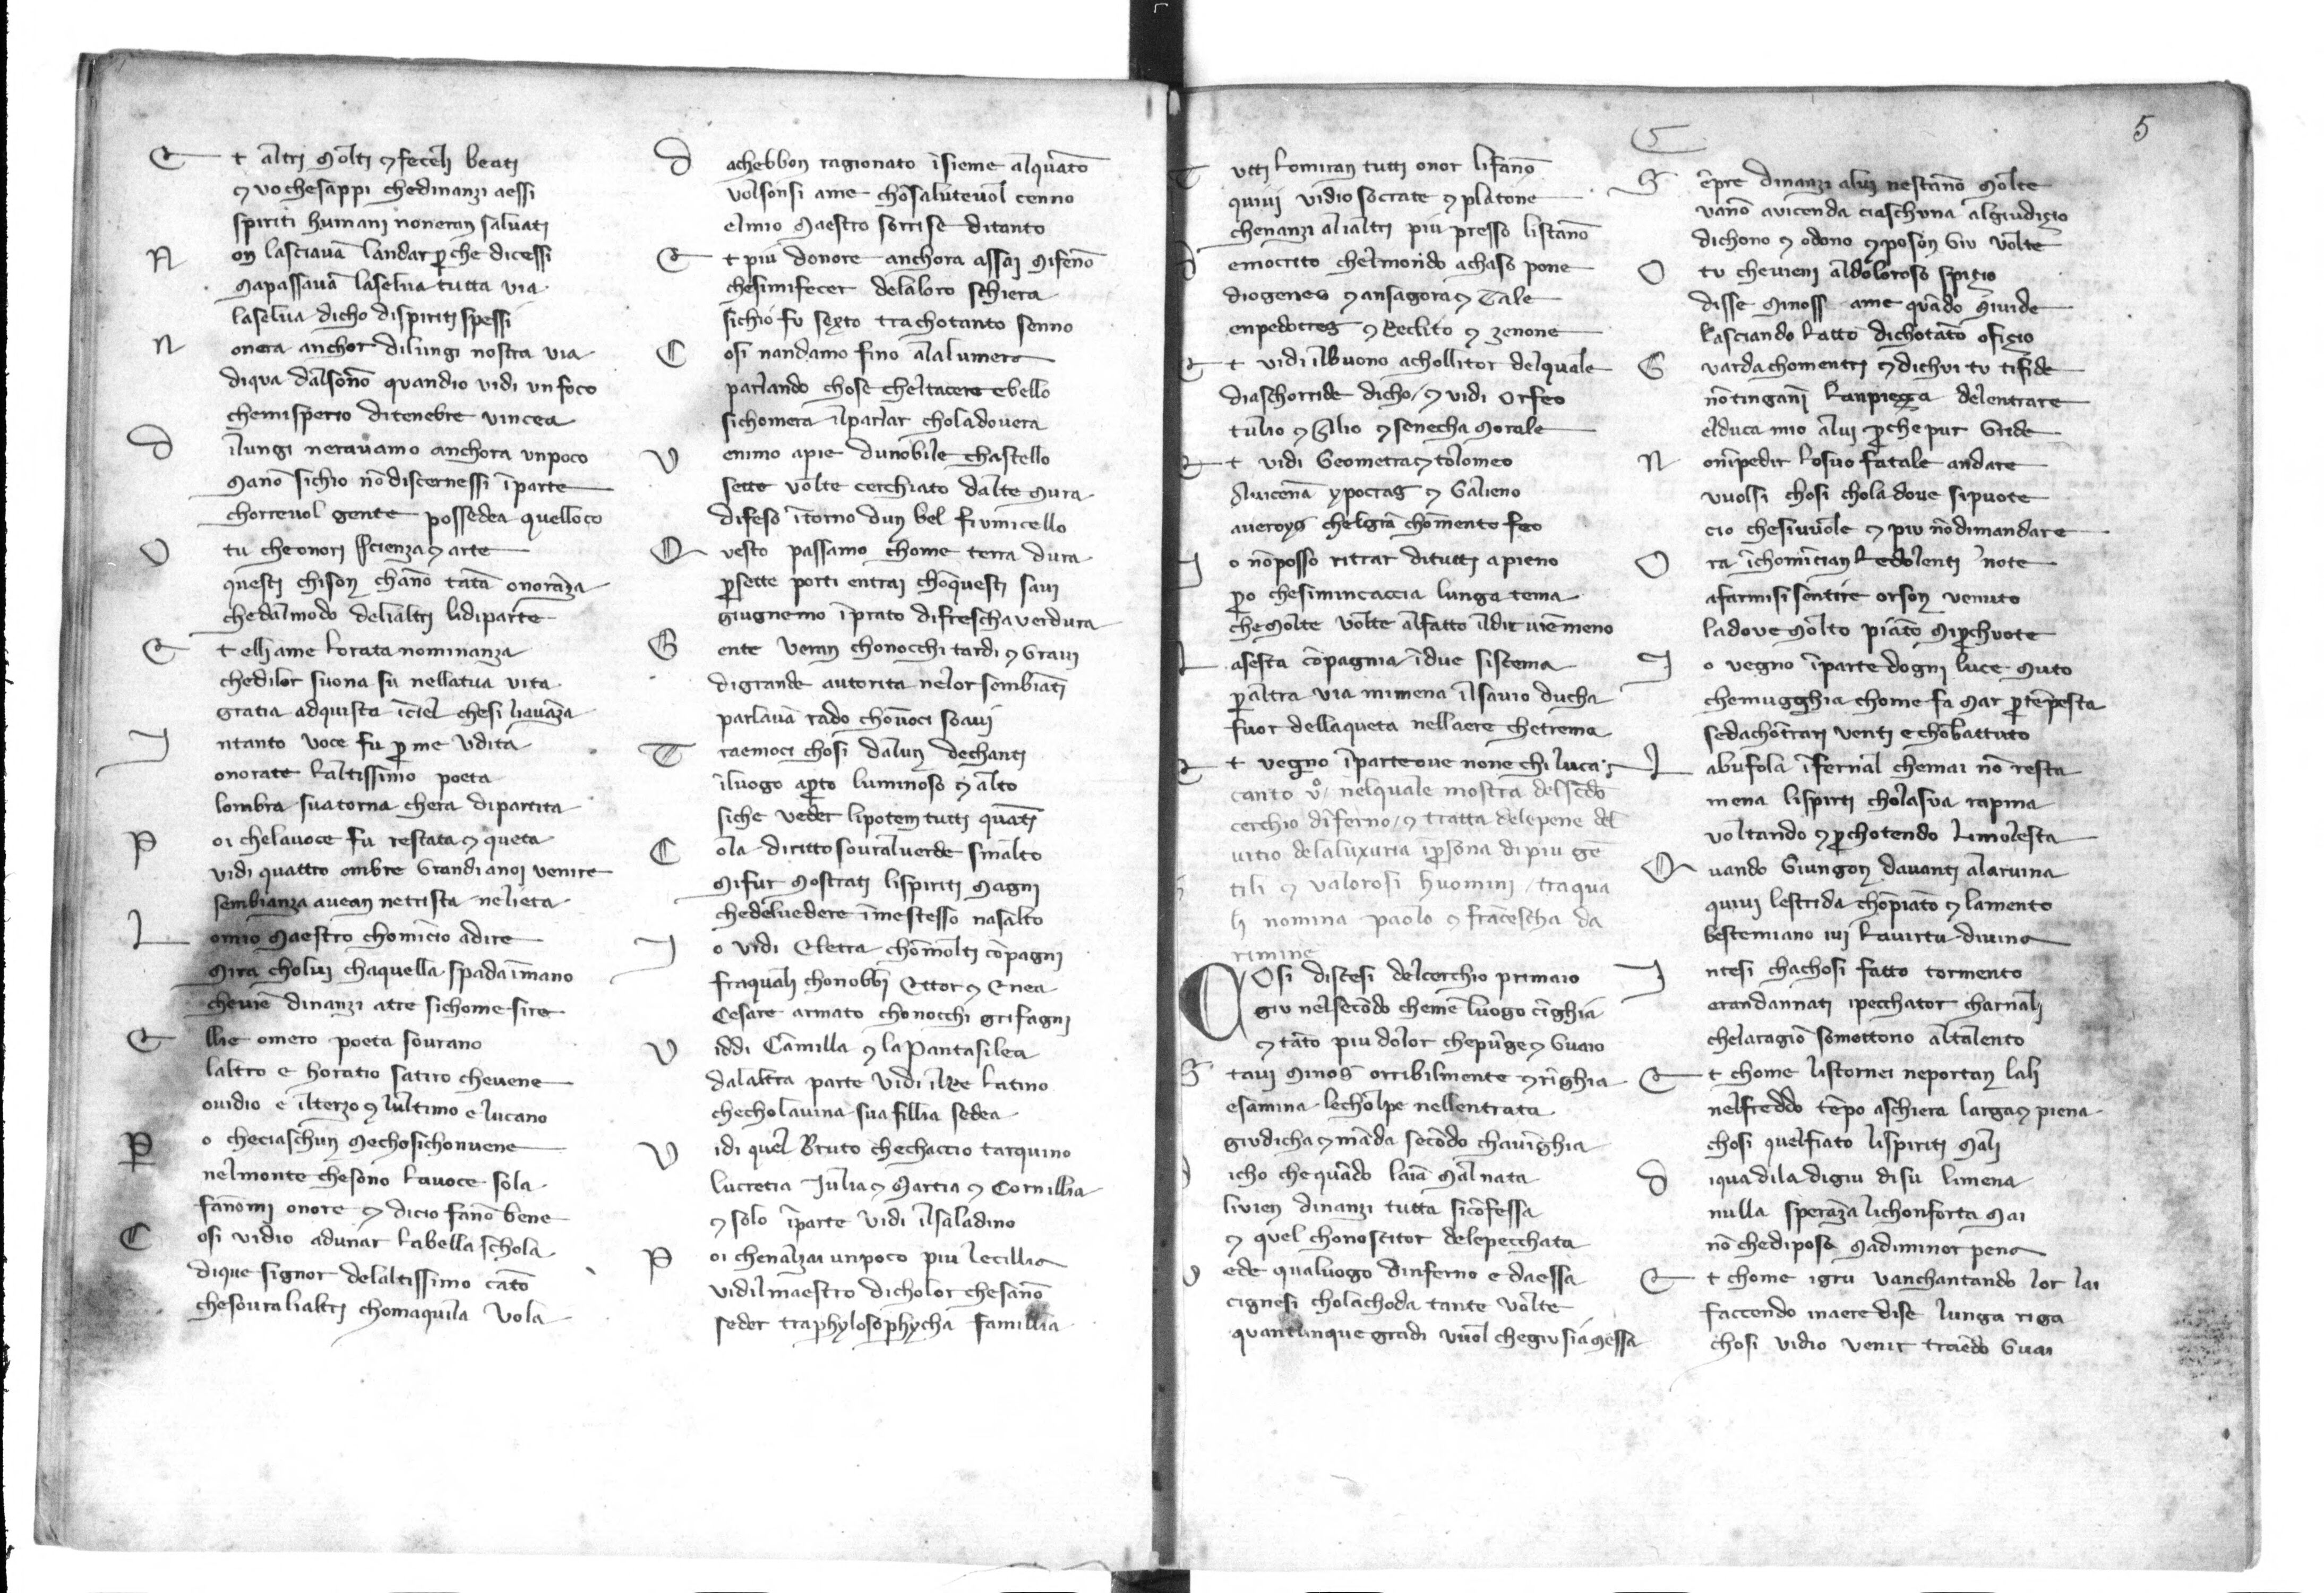 Et altri molti ⁊ feceli beati
⁊ vo che sappi che dinanzi a essi
spiriti humani non eran saluati
Non lasciauā landar ꝑche dicessi
ma passauā la selua tutta via
la selua dicho di spiriti spessi
Non era anchor di lungi nostra via
di qua dal sonō quandio vidi un foco
chemisperio di tenebre vincea
Di lungi nerauamo anchora un poco
ma nō sichio nō discernessi ī parte
chorreuol gente possedea quel loco
O tu che onori scienza ⁊ arte
questi chi son chānō tātā onorāza
che dal modo deli altri li diparte
Et elli a me lorata nominanza
che di lor suona su nella tua vita
gratia adquista ī ciel che si li auāza
Intanto voce fu ꝑ me vdita
onorate laltissimo poeta
lombra sua torna chera dipartita
Poi che la uoce fu restata ⁊ queta
vidi quattro ombre grandi a noi venire
sembianza auean ne trista ne lieta
Lo mio maestro chomīcio a dire
mira cholui cha quella spada ī mano
che viē dinanzi a tre si chome sire
Elli e omero poeta sourano
laltro e horatio satiro che vene
ouidio e il terzo ⁊ lultimo e lucano
Po che ciaschun mecho si chonuene
nel monte che sono la uoce sola
fānomi onore ⁊ di cio fānō bene
Cosi vidio adunar la bella schola
di que signor delaltissimo cāto
che soura li altri chom aquila vola
Da chebbon ragionato īsieme alquātō
volsonsi a me chō saluteuol cenno
el mio maestro sorrise di tanto
Et piu donore anchora assai mi fenō
che si mi fecer de la loro schiera
sichio fu sexto tra chotanto senno
Cosi nandamo fino ala lumera
parlando chose chel tacere e bello
si chomera il parlar chola douera
Venimo a pie du nobile chastello
sette volte cerchiato dalte mura
difeso ītorno dun bel fiumicello
Questo passamo chome terra dura
ꝑ sette porti entrai chō questi saui
giugnemo ī prato di frescha verdura
Gente veran chon occhi tardi ⁊ graui
di grande autorita ne lor sembiāti
parlauā rado chō uoci soaui
Traemoci chosi dalun de chanti
ī luogo aꝑto luminoso ⁊ alto
si che veder si potem tutti quāti
Cola diritto soural verde smalto
mi fur mostrati li spiriti magni
che del vedere ī me stesso nasalto
Io vidi Eletra chō molti cōpagni
fra quali chonobbi Ettor ⁊ Enea
Cesare armato chon occhi grifagni
Viddi Camilla ⁊ la Pantasilea
dalaltra parte vidi il Re latino
che cho lauina sua fillia sedea
Vidi quel Bruto che chaccio tarquino
lucretia Julia ⁊ Martia ⁊ Cornillia
⁊ solo ī parte vidi il saladino
Poi che nalzai un poco piu le cillia
vidil maestro di cholor che sānō
seder tra phylosophycha famillia
Tutti lo miran tutti onor li fānō
quiui vidio socrate ⁊ platone
che nanzi ali altri piu presso li stānō
Democrito chel mondo a chaso pone
diogenes ⁊ ansagora ⁊ Tale
enpedocres ⁊ Reclito ⁊ zenone
Et vidi il buono achollitor del quale
diaschorride dicho / ⁊ vidi orfeo
tulio ⁊ lilio ⁊ senecha morale
Et vidi Geometra ⁊ tolomeo
Auicenā ypocras ⁊ Galieno
aueroys chel grā chomento feo
Io nō posso ritrar di tutti a pieno
ꝑo che si mi ncaccia lunga tema
che molte volte al fatto il dir viē meno
La sesta cōpagnia ī due si scema
ꝑ altra via mi mena il sauio ducha
fuor della queta nellaere che trema
Et vegno ī parte oue none chi luca ·
canto vº / nel quale mostra del secōdo
cerchio dīferno / ⁊ tratta dele pene del
uitio dela luxuria ī ꝑsona di piu gē
tili ⁊ valorosi huomini / tra qua
li nomina paolo ⁊ frācescha da
rimine
Cosi discesi del cerchio primaio
giu nel secōdo che mē luogo cīghia
⁊ tāto piu dolor che pūge ⁊ guaio
Staui Minos orribilmente ⁊ rīghia
esamina le cholpe nellentrata
giudicha ⁊ māda secōdo chauīghia
Dicho che quādo laīa mal nata
li vien dinanzi tutta si cōfessa
⁊ quel chonoscitor dele pecchata
Vede qua luogo dinferno e da essa
cignesi chola choda tante volte
quantunque gradi vuol che giu sia messa
5
5
Sēpre dinanzi a lui ne stānō molte
vanō a vicenda ciaschuna al giudizio
dichono ⁊ odono ⁊ poson giu volte
O tu che vieni al doloroso spizio
disse Minoss a me quādo mi vide
lasciando latto di chotāto ofizio
Guarda chomentri ⁊ di chui tu ti fide
nō tingāni lanpiezza delentrare
el duca mio a lui ꝑche pur gride
Non īpedir lo suo fatale andare
vuolsi chosi chola doue si puote
cio che si vuole ⁊ piu nō dimandare
Ora īchomīcian le dolenti note
a farmisi sentire or son venuto
la doue molto piāto mi ꝑchuote
Io vegno ī parte dogni luce muto
che mugghia chome fa mar ꝑ tēpesta
se da chōtrari venti e chōbattuto
La bufola īfernal che mai nō resta
mena li spirti chola sua rapina
voltando ⁊ ꝑchotendo li molesta
Quando giungon dauanti ala ruina
quiui le strida chōpiāto ⁊ lamento
bestemiano iui la uirtu diuina
Intesi cha chosi fatto tormento
eran dannati i pecchator charnali
che la ragiō somettono al talento
Et chome li stornei ne portan lali
nel freddo tēpo a schiera larga ⁊ piena
chosi quel fiato li spiriti mali
Di qua di la di giu di su li mena
nulla sperāza li chonforta mai
nō che di posa ma di minor pena
Et chome i gru van chantando lor lai
faccendo in aere di se lunga riga
chosi vidio venir traēdo guai